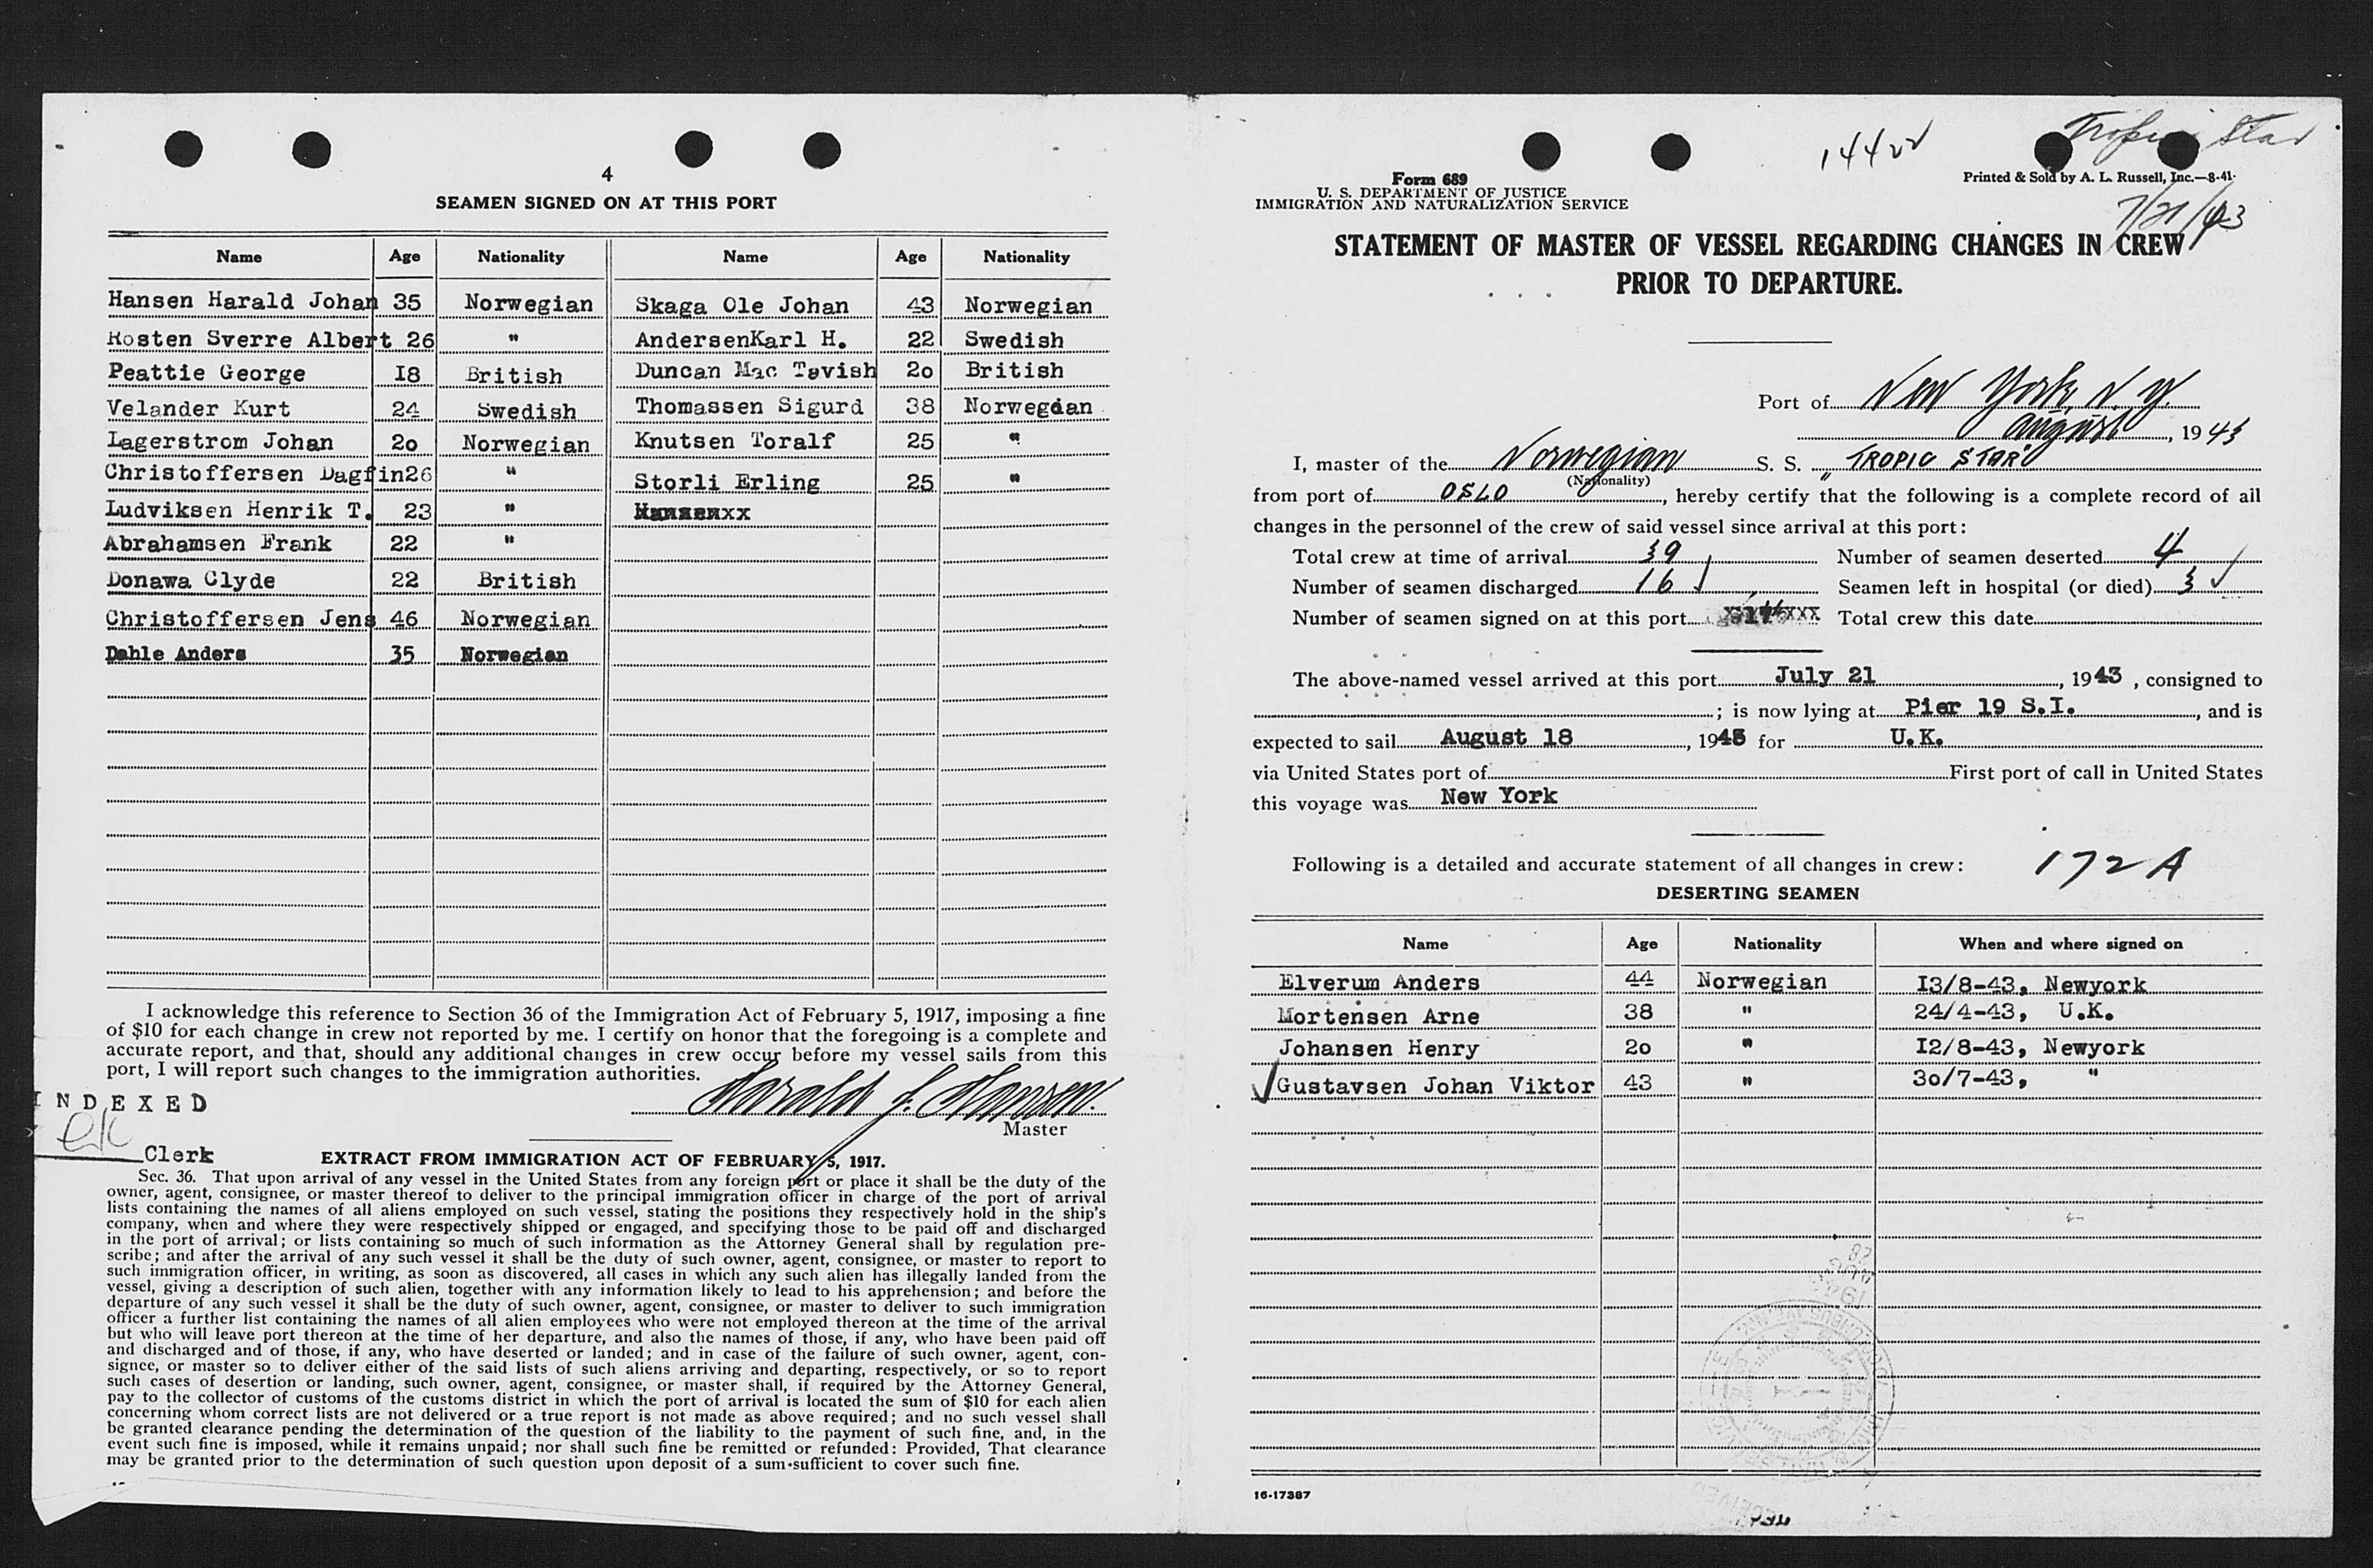 4
SEAMEN SIGNED ON AT THIS PORT
Name Age Nationality Name Age Nationality
Hansen Harald Johan 35 Norwegian Skaga Ole Johan 43 Norwegian
Rosten Sverre Albert 26 " AndersenKarl H. 22 Swedish
Peattie George I8 British Duncan Mac Tavish 2o British
Velander Kurt 24 Swedish Thomassen Sigurd 38 Norwegian
Lagerstrom Johan 2o Norwegian Knutsen Toralf 25 "
Christoffersen Dagfin26 " Storli Erling 25 "
Ludviksen Henrik T. 23 "
Abrahamsen Frank 22 "
Donawa Clyde 22 British
Christoffersen Jens 46 Norwegian
Dahle Anders 35 Norwegian
I acknowledge this reference to Section 36 of the Immigration Act of February 5, 1917, imposing a fine
of $10 for each change in crew not reported by me. I certify on honor that the foregoing is a complete and
accurate report, and that, should any additional changes in crew occur before my vessel sails from this
port, I will report such changes to the immigration authorities.
Harald J. Hansen.
Master
INDEXED
Clerk
EXTRACT FROM IMMIGRATION ACT OF FEBRUARY 5, 1917.
Sec. 36. That upon arrival of any vessel in the United States from any foreign port or place it shall be the duty of the
owner, agent, consignee, or master thereof to deliver to the principal immigration officer in charge of the port of arrival
lists containing the names of all aliens employed on such vessel, stating the positions they respectively hold in the ship's
company, when and where they were respectively shipped or engaged, and specifying those to be paid off and discharged
in the port of arrival; or lists containing so much of such information as the Attorney General shall by regulation pre-
scribe; and after the arrival of any such vessel it shall be the duty of such owner, agent, consignee, or master to report to
such immigration officer, in writing, as soon as discovered, all cases in which any such alien has illegally landed from the
vessel, giving a description of such alien, together with any information likely to lead to his apprehension; and before the
departure of any such vessel it shall be the duty of such owner, agent, consignee, or master to deliver to such immigration
officer a further list containing the names of all alien employees who were not employed thereon at the time of the arrival
but who will leave port thereon at the time of her departure, and also the names of those, if any, who have been paid off
and discharged and of those, if any, who have deserted or landed; and in case of the failure of such owner, agent, con-
signee, or master so to deliver either of the said lists of such aliens arriving and departing, respectively, or so to report
such cases of desertion or landing, such owner, agent, consignee, or master shall, if required by the Attorney General,
pay to the collector of customs of the customs district in which the port of arrival is located the sum of $10 for each alien
concerning whom correct lists are not delivered or a true report is not made as above required; and no such vessel shall
be granted clearance pending the determination of the question of the liability to the payment of such fine, and, in the
event such fine is imposed, while it remains unpaid; nor shall such fine be remitted or refunded: Provided, That clearance
may be granted prior to the determination of such question upon deposit of a sum sufficient to cover such fine.
14422
Tropic Star
Form 689
U. S. DEPARTMENT OF JUSTICE
IMMIGRATION AND NATURALIZATION SERVICE
Printed & Sold by A. L. Russell, Inc.—8-41
7/21/43
STATEMENT OF MASTER OF VESSEL REGARDING CHANGES IN CREW
PRIOR TO DEPARTURE.
Port of New York, N.Y.
August, 1943
I, master of the Norwegian S. S. "TROPIC STAR"
(Nationality)
from port of OSLO, hereby certify that the following is a complete record of all
changes in the personnel of the crew of said vessel since arrival at this port:
Total crew at time of arrival 39 Number of seamen deserted 4
Number of seamen discharged 16 Seamen left in hospital (or died) 3
Number of seamen signed on at this port Total crew this date
The above-named vessel arrived at this port July 21, 1943, consigned to
; is now lying at Pier 19 S.I., and is
expected to sail August 18, 1943 for U.K.
via United States port of First port of call in United States
this voyage was New York
Following is a detailed and accurate statement of all changes in crew: 172A
DESERTING SEAMEN
Name Age Nationality When and where signed on
Elverum Anders 44 Norwegian I3/8-43, Newyork
Mortensen Arne 38 " 24/4-43, U.K.
Johansen Henry 2o " I2/8-43, Newyork
Gustavsen Johan Viktor 43 " 3o/7-43, "
16-17387